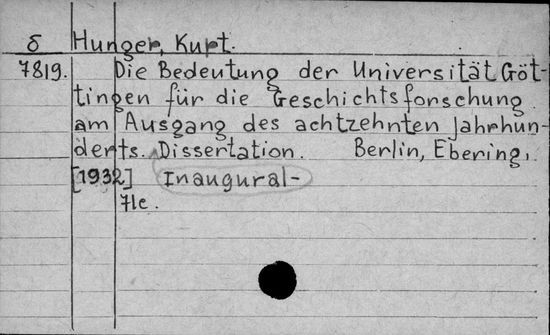 δ Hunger, Kurt.
7819. Die Bedeutung der Universität Göt-
tingen für die Geschichtsforschung
am Ausgang des achtzehnten Jahrhun-
derts. Dissertation. Berlin, Ebering,
[1932] Inaugural-